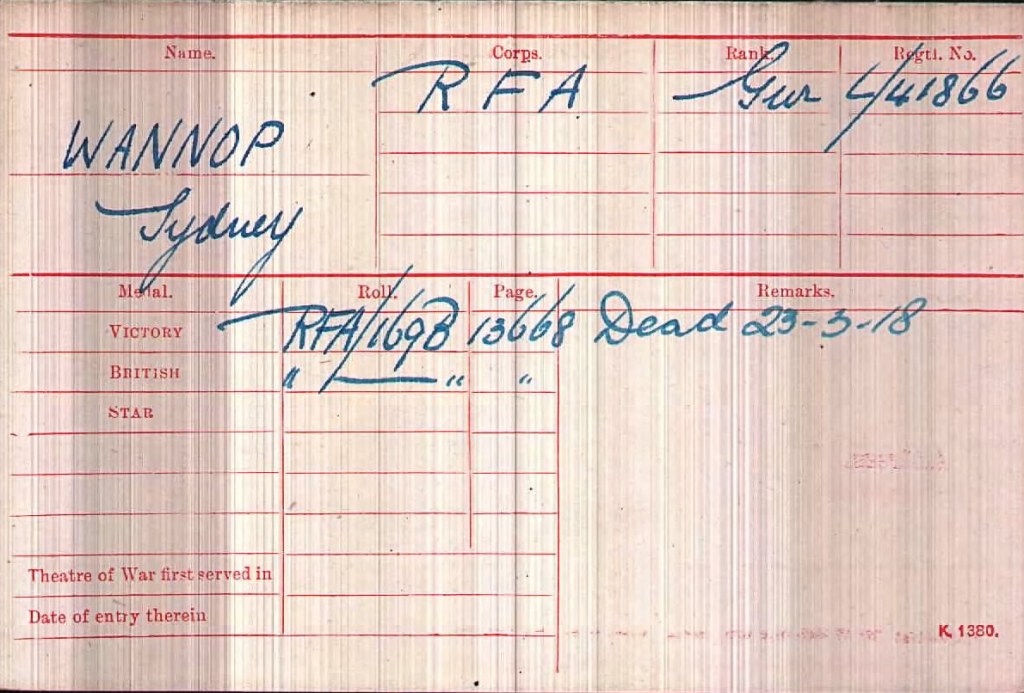 Name. Corps. Rank. Regtl. No.
RFA Gnr L/41866
WANNOP
Sydney
Medal. Roll. Page. Remarks.
VICTORY RFA/169B 13668 Dead 23-3-18
BRITISH " — " "
STAR
Theatre of War first served in
Date of entry therein
K. 1380.